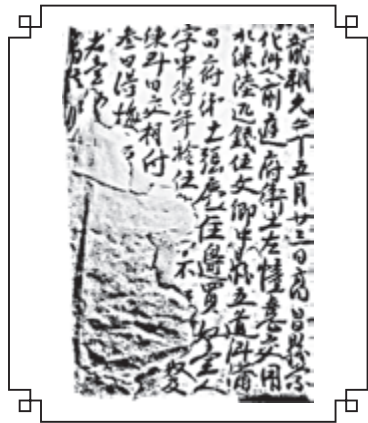 龍朔元年五月廿三日高昌縣崇
化鄉人前庭府衛士左憧憙交用
水練陸疋錢伍文柳中縣五道鄉蒲
昌府衛士張慶住邊買奴壹人
字申得年拾伍 不
練即日交相付
叁日得悔
若壹